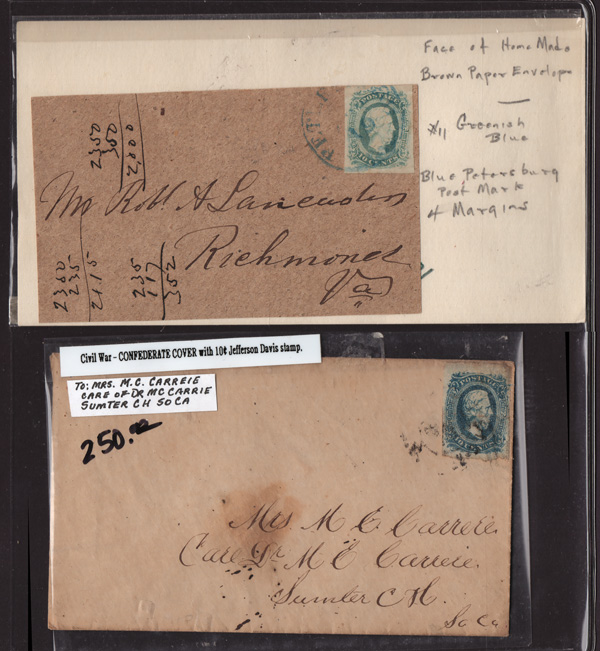 Face of Home Made
Brown Paper Envelope
#11 Greenish
Blue
Blue Petersburg
Post Mark
4 Margins
POSTAGE
PET
2350
350
2,000
Mr Robt. A Lancaster
Richmond
Va
2350
235
2115
235
117
352
Civil War - CONFEDERATE COVER with 10¢ Jefferson Davis stamp.
TO: MRS. M.C. CARREIE
CARE OF DR MC CARRIE
SUMTER CH SO CA
250.00
POSTAGE
Mrs M C Carrere
Care Dr M C Carrere
Sumter C H.
So Ca